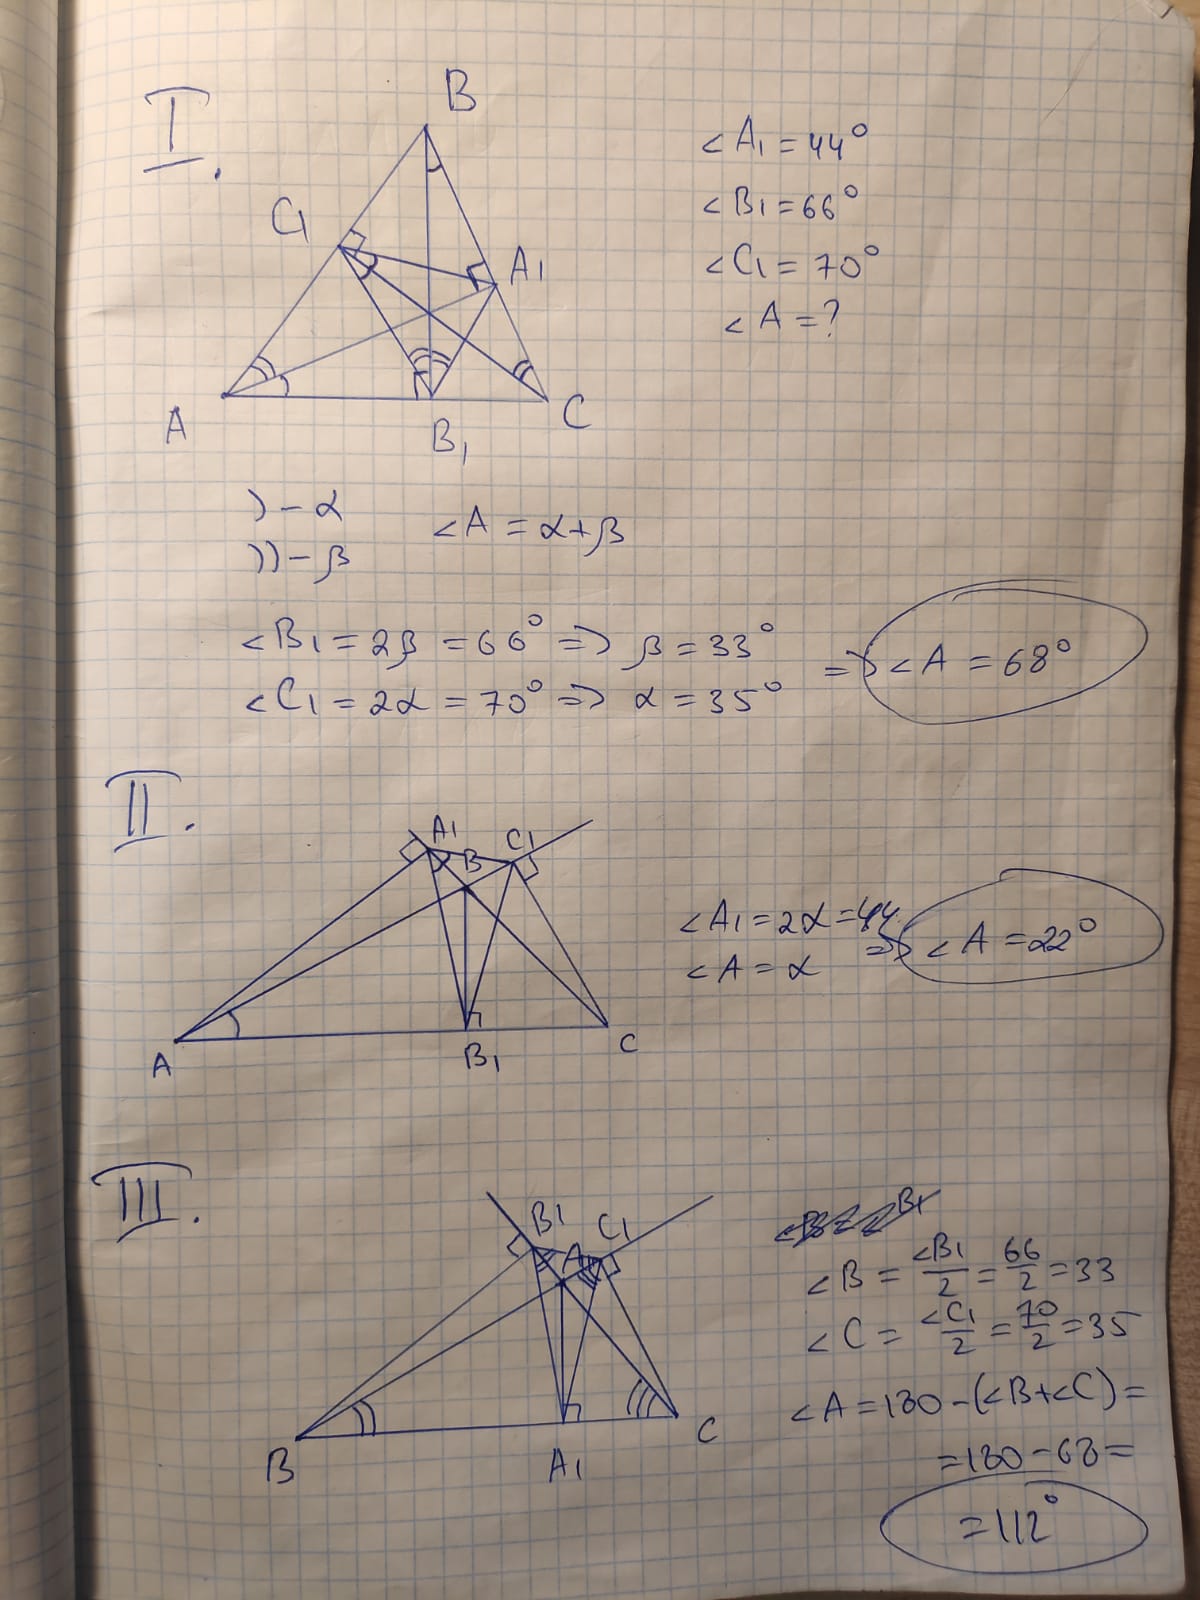 I.
B
C1
A1
A
B1
C
<A1 = 44°
<B1 = 66°
<C1 = 70°
<A = ?
) - α
)) - β
<A = α+β
<B1 = 2β = 66° => β = 33°
<C1 = 2α = 70° => α = 35°
=> <A = 68°
II.
A1
B
C1
A
B1
C
<A1 = 2α = 44
<A = α
=> <A = 22°
III.
B1
A
C1
B
A1
C
<B = <B1/2 = 66/2 = 33
<C = <C1/2 = 70/2 = 35
<A = 180 - (<B+<C) =
= 180 - 68 =
= 112°